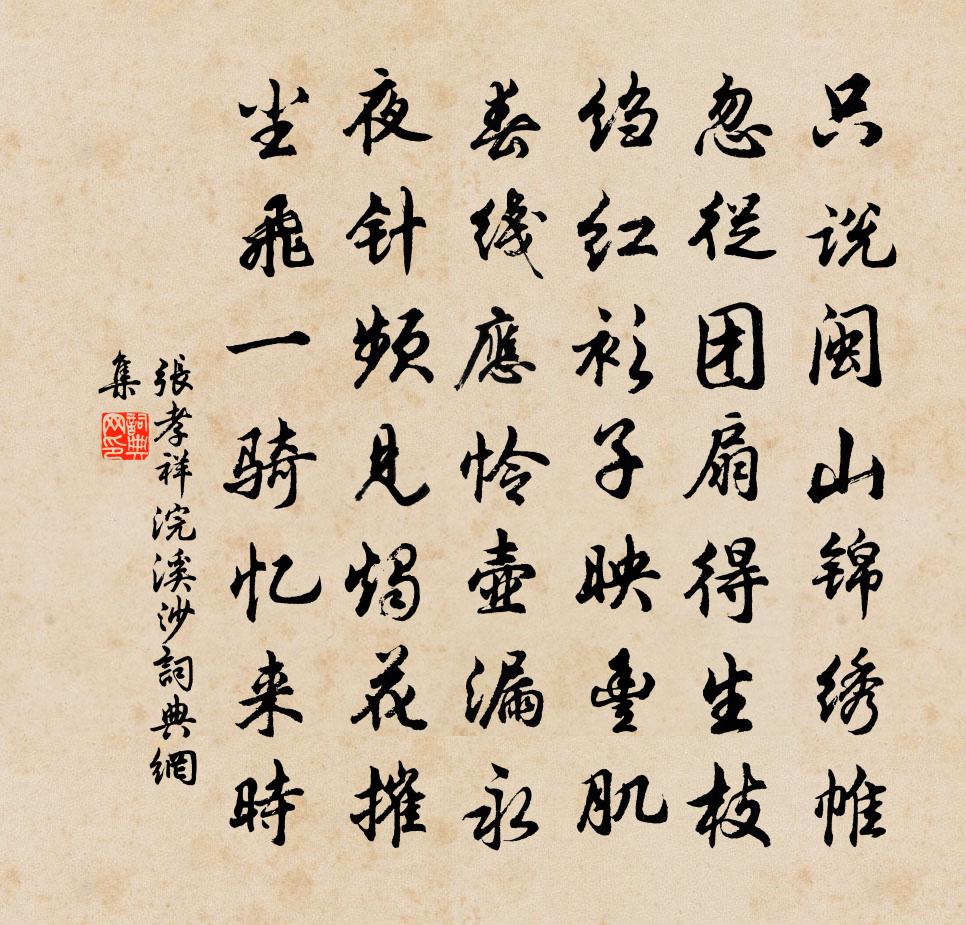 只说闽山锦绣帷
忽從团扇得生枝
绉红衫子映豐肌
春线應怜壺漏永
夜针频见燭花摧
尘飛一骑忆来時
張孝祥浣溪沙詞典網
集
詞典网印